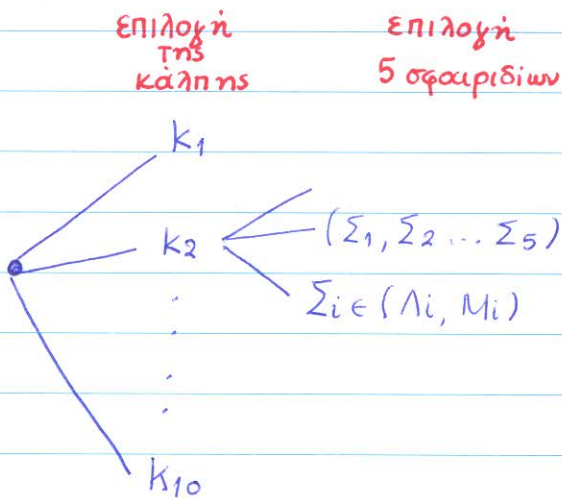 επιλογή
της
κάλπης
επιλογή
5 σφαιριδίων
K1
K2
(Σ1, Σ2 ... Σ5)
Σi ∈ (Λi, Μi)
K10